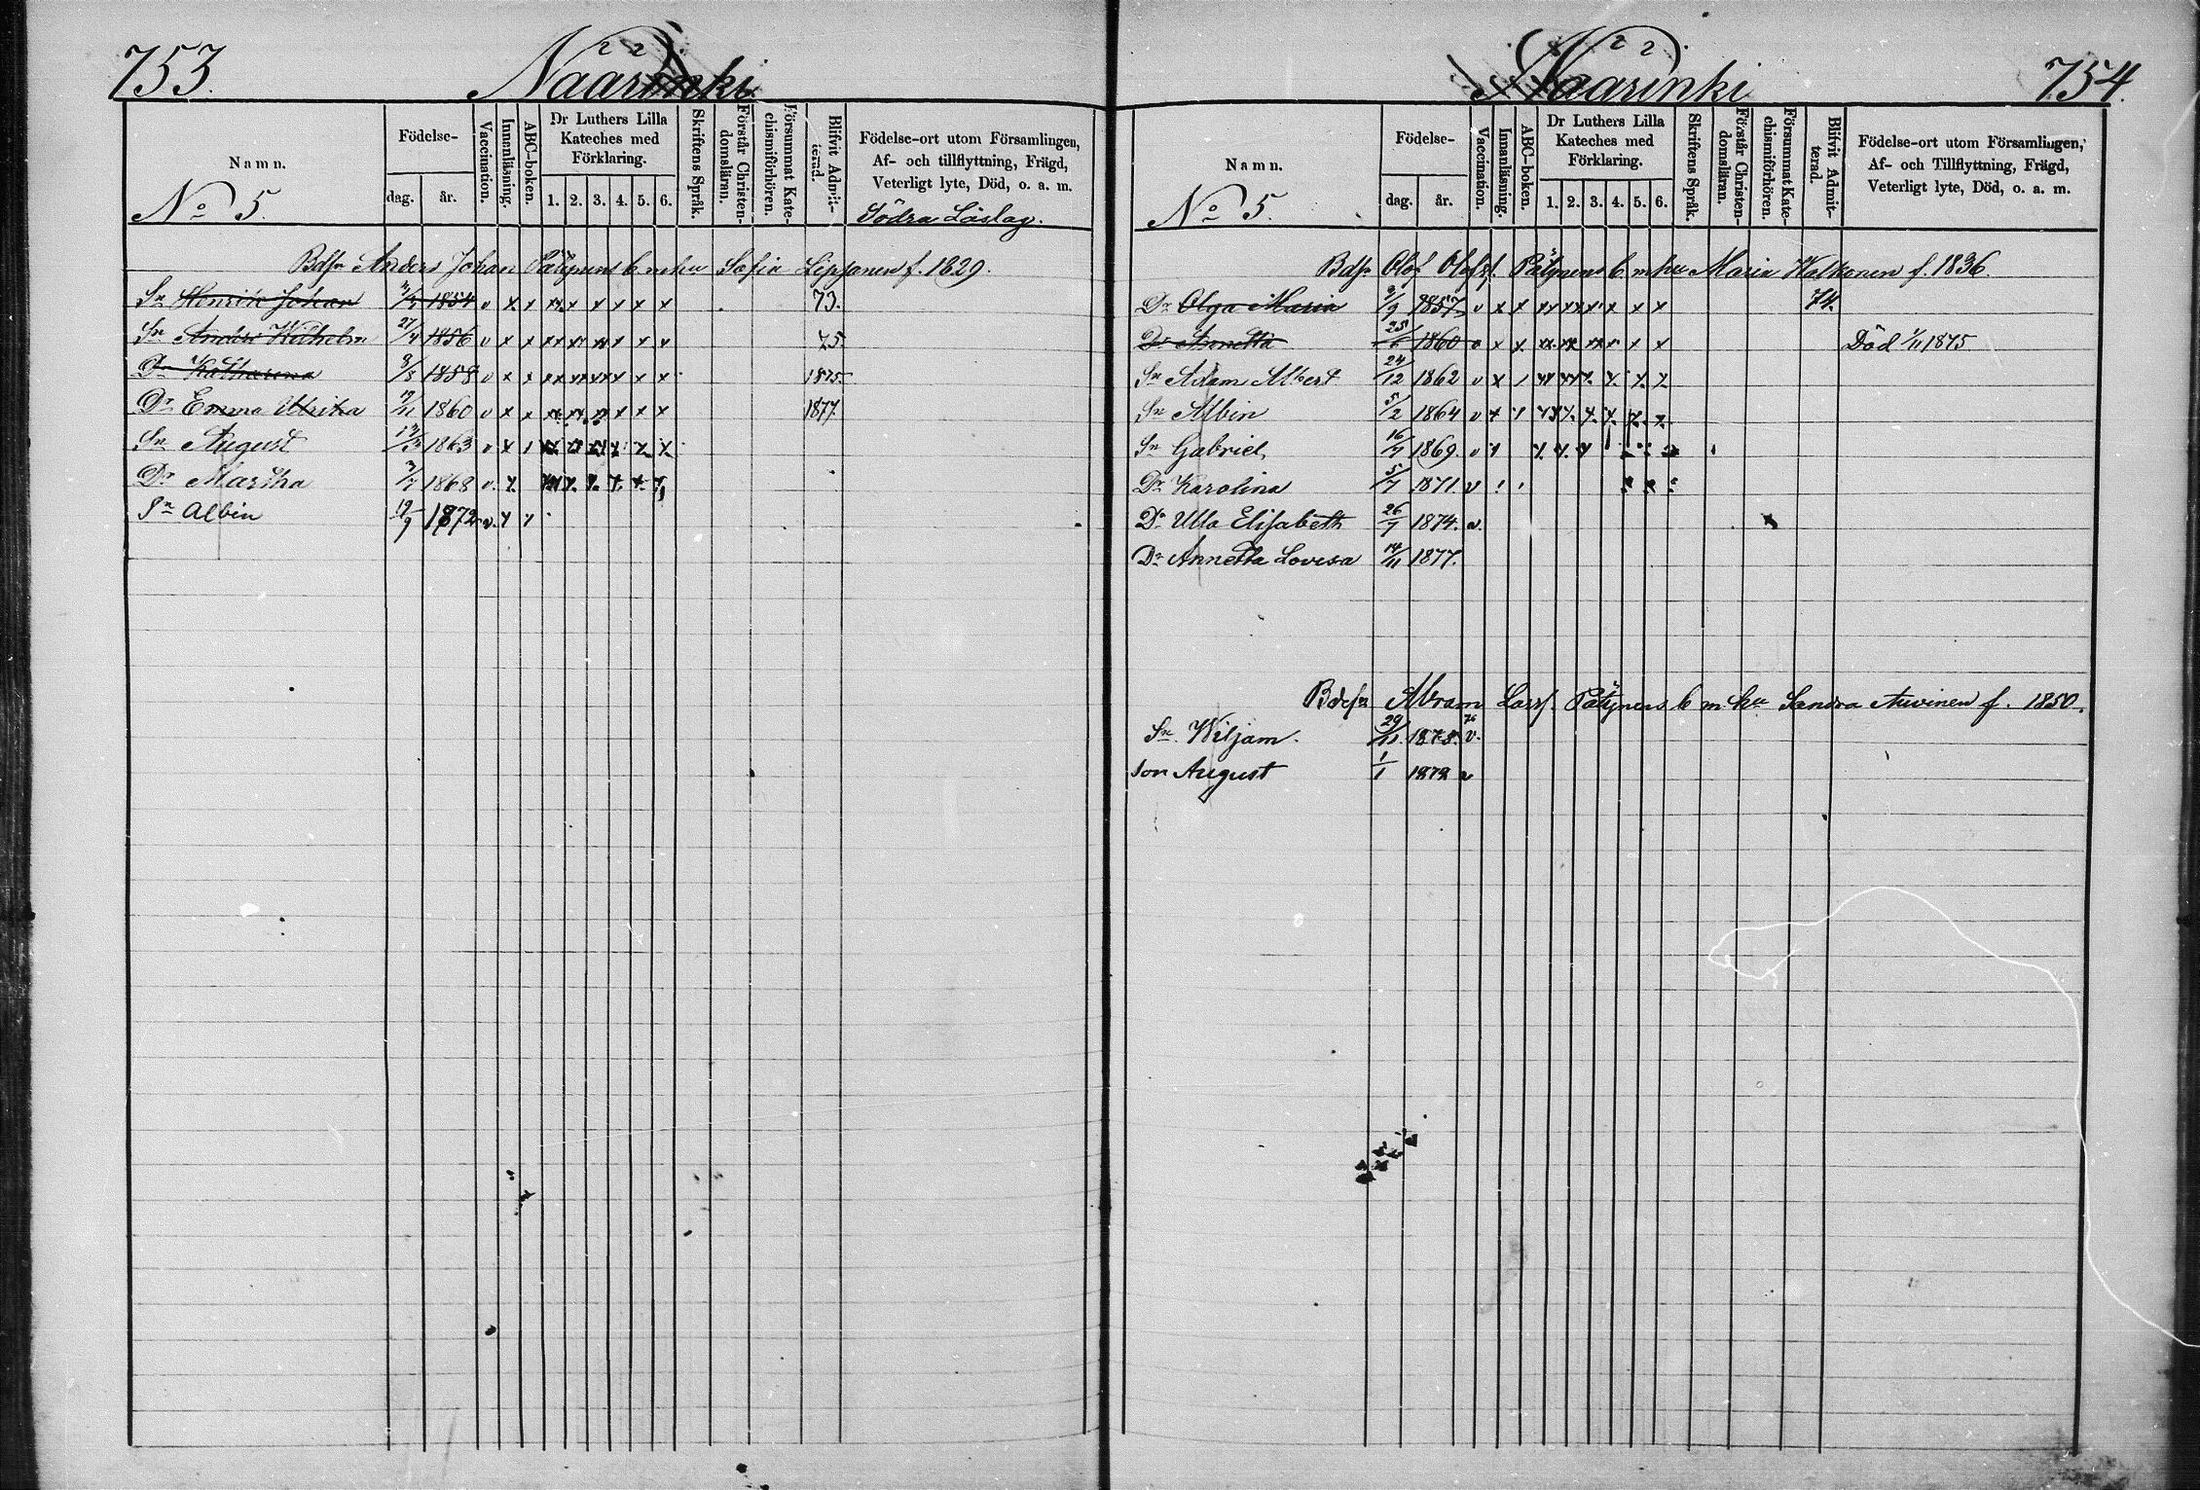 753.
Naarinki
Namn.
Födelse-
dag.
år.
Vaccination.
Innanläsning.
ABC-boken.
Dr Luthers Lilla
Kateches med
Förklaring.
1. 2. 3. 4. 5. 6.
Skriftens Språk.
Förstår Christen-
domsläran.
Försummat Kate-
chismiförhören.
Blifvit Admit-
terad.
Födelse-ort utom Församlingen,
Af- och tillflyttning, Frägd,
Veterligt lyte, Död, o. a. m.
No 5.
Södra Läslag.
Bdsn Anders Johan Pätynens b. m hu Sofia Lipsanen f. 1829.
Sn Henrik Johan 1854 v x x x x x x x x 73.
Sn Anders Wilhelm 27/4 1856 v x x x x x x x x 75
Dr Katharina 3/8 1858 v x x x x x x x x 1875.
Dr Emma Ulrika 1860 v x x x x x x x x 1877.
Sn August 1863 v x
Dr Martha 1868 v. x.
Sn Albin 19/9 1872 v. x x
754.
Naarinki
Namn.
Födelse-
dag.
år.
Vaccination.
Innanläsning.
ABC-boken.
Dr Luthers Lilla
Kateches med
Förklaring.
1. 2. 3. 4. 5. 6.
Skriftens Språk.
Förstår Christen-
domsläran.
Försummat Kate-
chismiförhören.
Blifvit Admit-
terad.
Födelse-ort utom Församlingen,
Af- och Tillflyttning, Frägd,
Veterligt lyte, Död, o. a. m.
No 5.
Bdsn Olof Olofss. Pätynens b. m hu Maria Walkonen f. 1836.
Dr Olga Maria 2/9 1857 v x x x x x x x x 74.
Dr Annetta 25/6 1860 v x x x x x x x x Död 1/11 1875
Sn Adam Albert 24/12 1862 v x
Sn Albin 5/2 1864 v x
Sn Gabriel 16/7 1869. v x
Dr Karolina 5/7 1871. v
Dr Ulla Elisabeth 26/7 1874. v.
Dr Annetta Lovisa 14/11 1877.
Bdesn Abram Larss. Pätynens b m. hu Sandra Auvinen f. 1850.
Sn Wiljam. 29/11 1875. v.
son August 1/1 1878 v